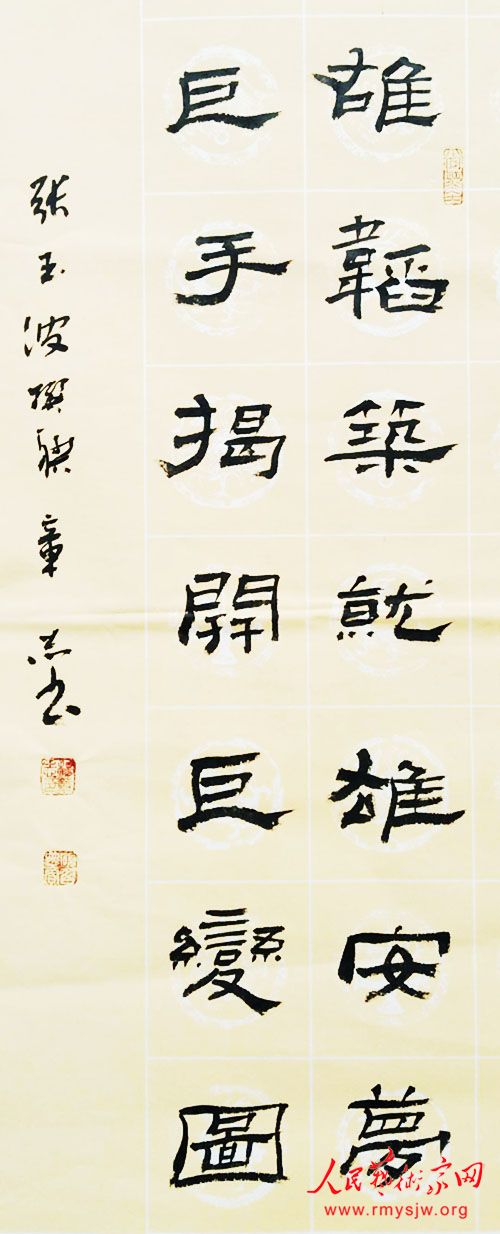 雄韜築就雄安夢
巨手揭開巨變圖
張玉波撰聯 章志書
人民藝術家网
www.rmysjw.org